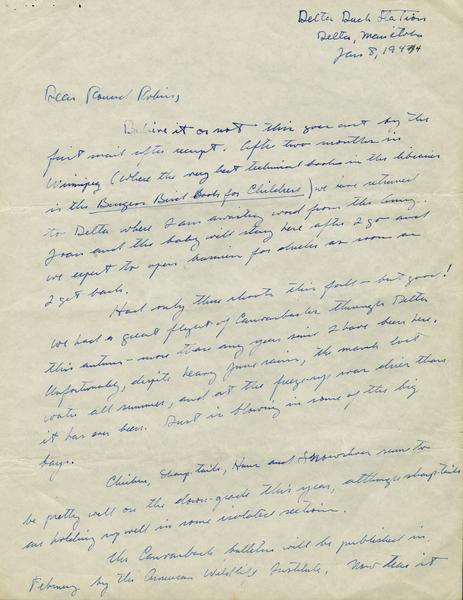 Delta Duck Station
Delta, Manitoba
Jan 8, 1944
Dear Round Robins,
Believe it or not this goes out by the
first mail after receipt. After two months in
Winnipeg (where the very best technical books in the libraries
is the Burgess Bird Book for Children) we have returned
to Delta where I am awaiting word from the Army.
Joan and the baby will stay here after I go and
we expect to open business for ducks as soon as
I get back.
Had only three shoots this fall – but good!
We had a great flight of Canvasbacks through Delta
this autumn – more than any year since I have been here.
Unfortunately, despite heavy June rains, the marsh lost
water all summer, and at the freeze-up was drier than
it has ever been. Dust is blowing in some of the big
bays.
Chicken, Sharptails, Huns and Snowshoes seem to
be pretty well on the down-grade this year, although sharptails
are holding up well in some isolated sections.
The Canvasback bulletin will be published in
February by the American Wildlife Institute. Now that it